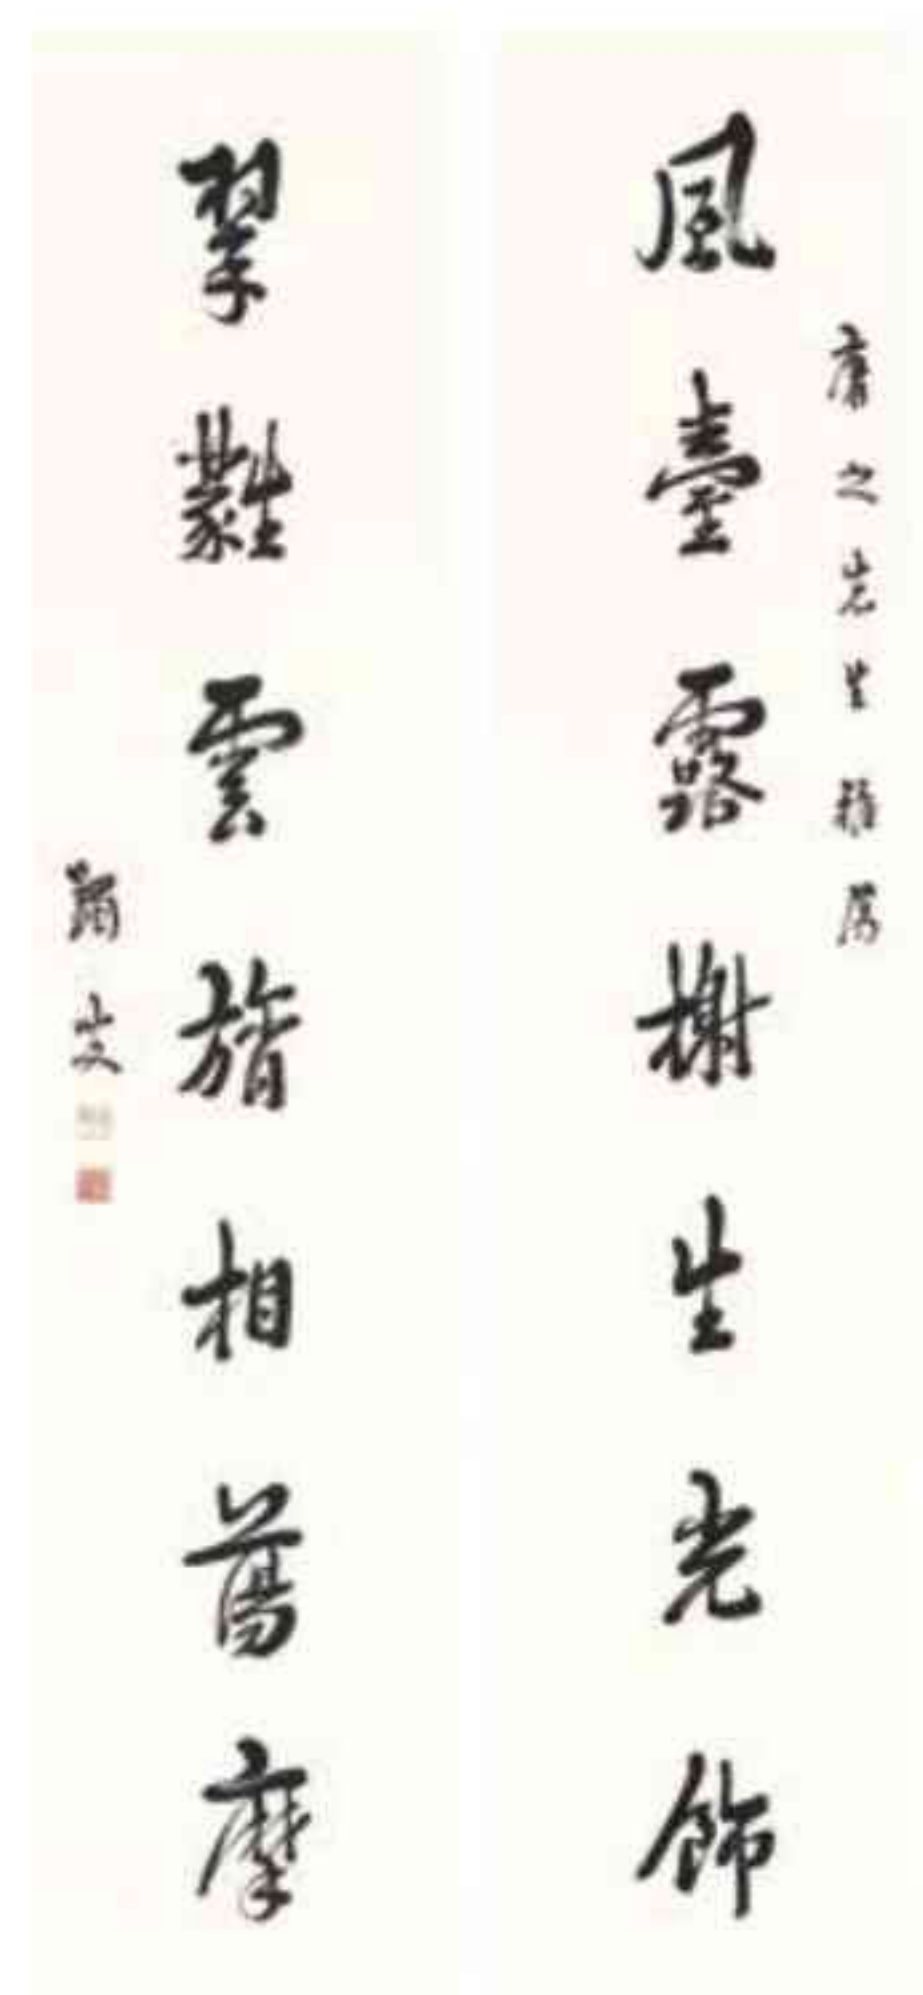 風臺露榭生光飾
庸之先生雅屬
翠蕤雲旓相蕩摩